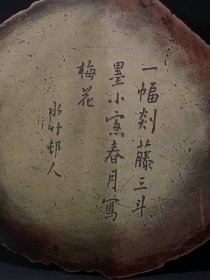 一幅剡藤三斗
墨小窗春月寫
梅花
水竹邨人